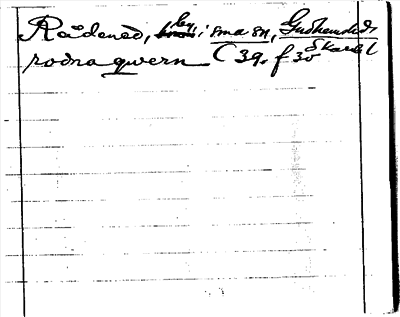 Rådened, by i sma sn, Gudhems hd,
Skarab l
rodna qwern C 39. f 30